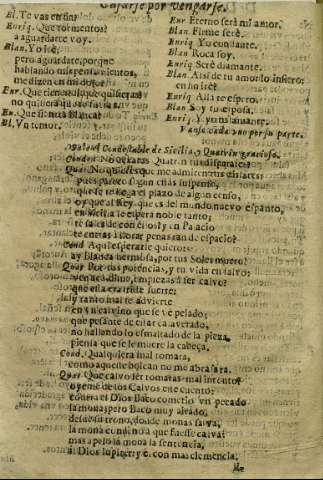 Casarse por vengarse.
El. Te vas en fin?
Enriq. Que tormentos?
a aguardarte voy.
Blan. Yo iré,
pero aguardarte, porque
hablando mis pensamientos,
me dizen a mi dolor
Enr. Que
no quisiera
En. Que sientes Blanca?
Bl. Vn temor.
Enr. Eterno serà mi amor.
Blan. Firme serè.
Enriq. Yo constante.
Blan. Roca soy.
Enriq. Serè diamante.
Blan. Assi de tu amor lo infiero:
en fin irè?
Enriq. Allà te espero.
Blan. Soy tu esposa.
Enriq. Y yo tu amante.
Vanse cada uno por su parte.
Salen el Condestable de Sicilia, y Quatrin gracioso.
Cond. No dexaràs Quatrin tus disparates?
Quat. No quieres que me admire
pues parece segun estàs suspenso,
que se te llega el plazo de algun censo,
oy que al Rey, que es del mundo nuevo espanto,
en Sicilia le espera noble tanto;
te sales de con ellos, y en Palacio
te entras à llorar penas tan de espacio?
Cond. Aqui esperarte quierose
ay Blanca hermosa, por tus Soles muero?
Quat. Por tus potencias, y tu vida en salvo:
ven acà dime, empiezas à ser calvo?
que essa era triste suerte;
y tanto mal te advierte
en vn calvino que se ve pelado;
que pesante de estar
no hallando lo esmaltado de la pieza,
piensa que se le muere la cabeça.
Cond. Qualquiera mal tomara,
como aqueste bolcan no me abrasara.
Quat. Que calvo ser tomaras mal intento?
oyeme de los Calvos este cuento:
contra el Dios Baco cometiò vn pecado
la mona; pero Baco muy ayrado,
desde su trono, donde monas salva,
la mona condenò a que fuesse calva:
mas apelò la mona la sentencia,
al Dios Iupiter; y èl con mas clemencia,